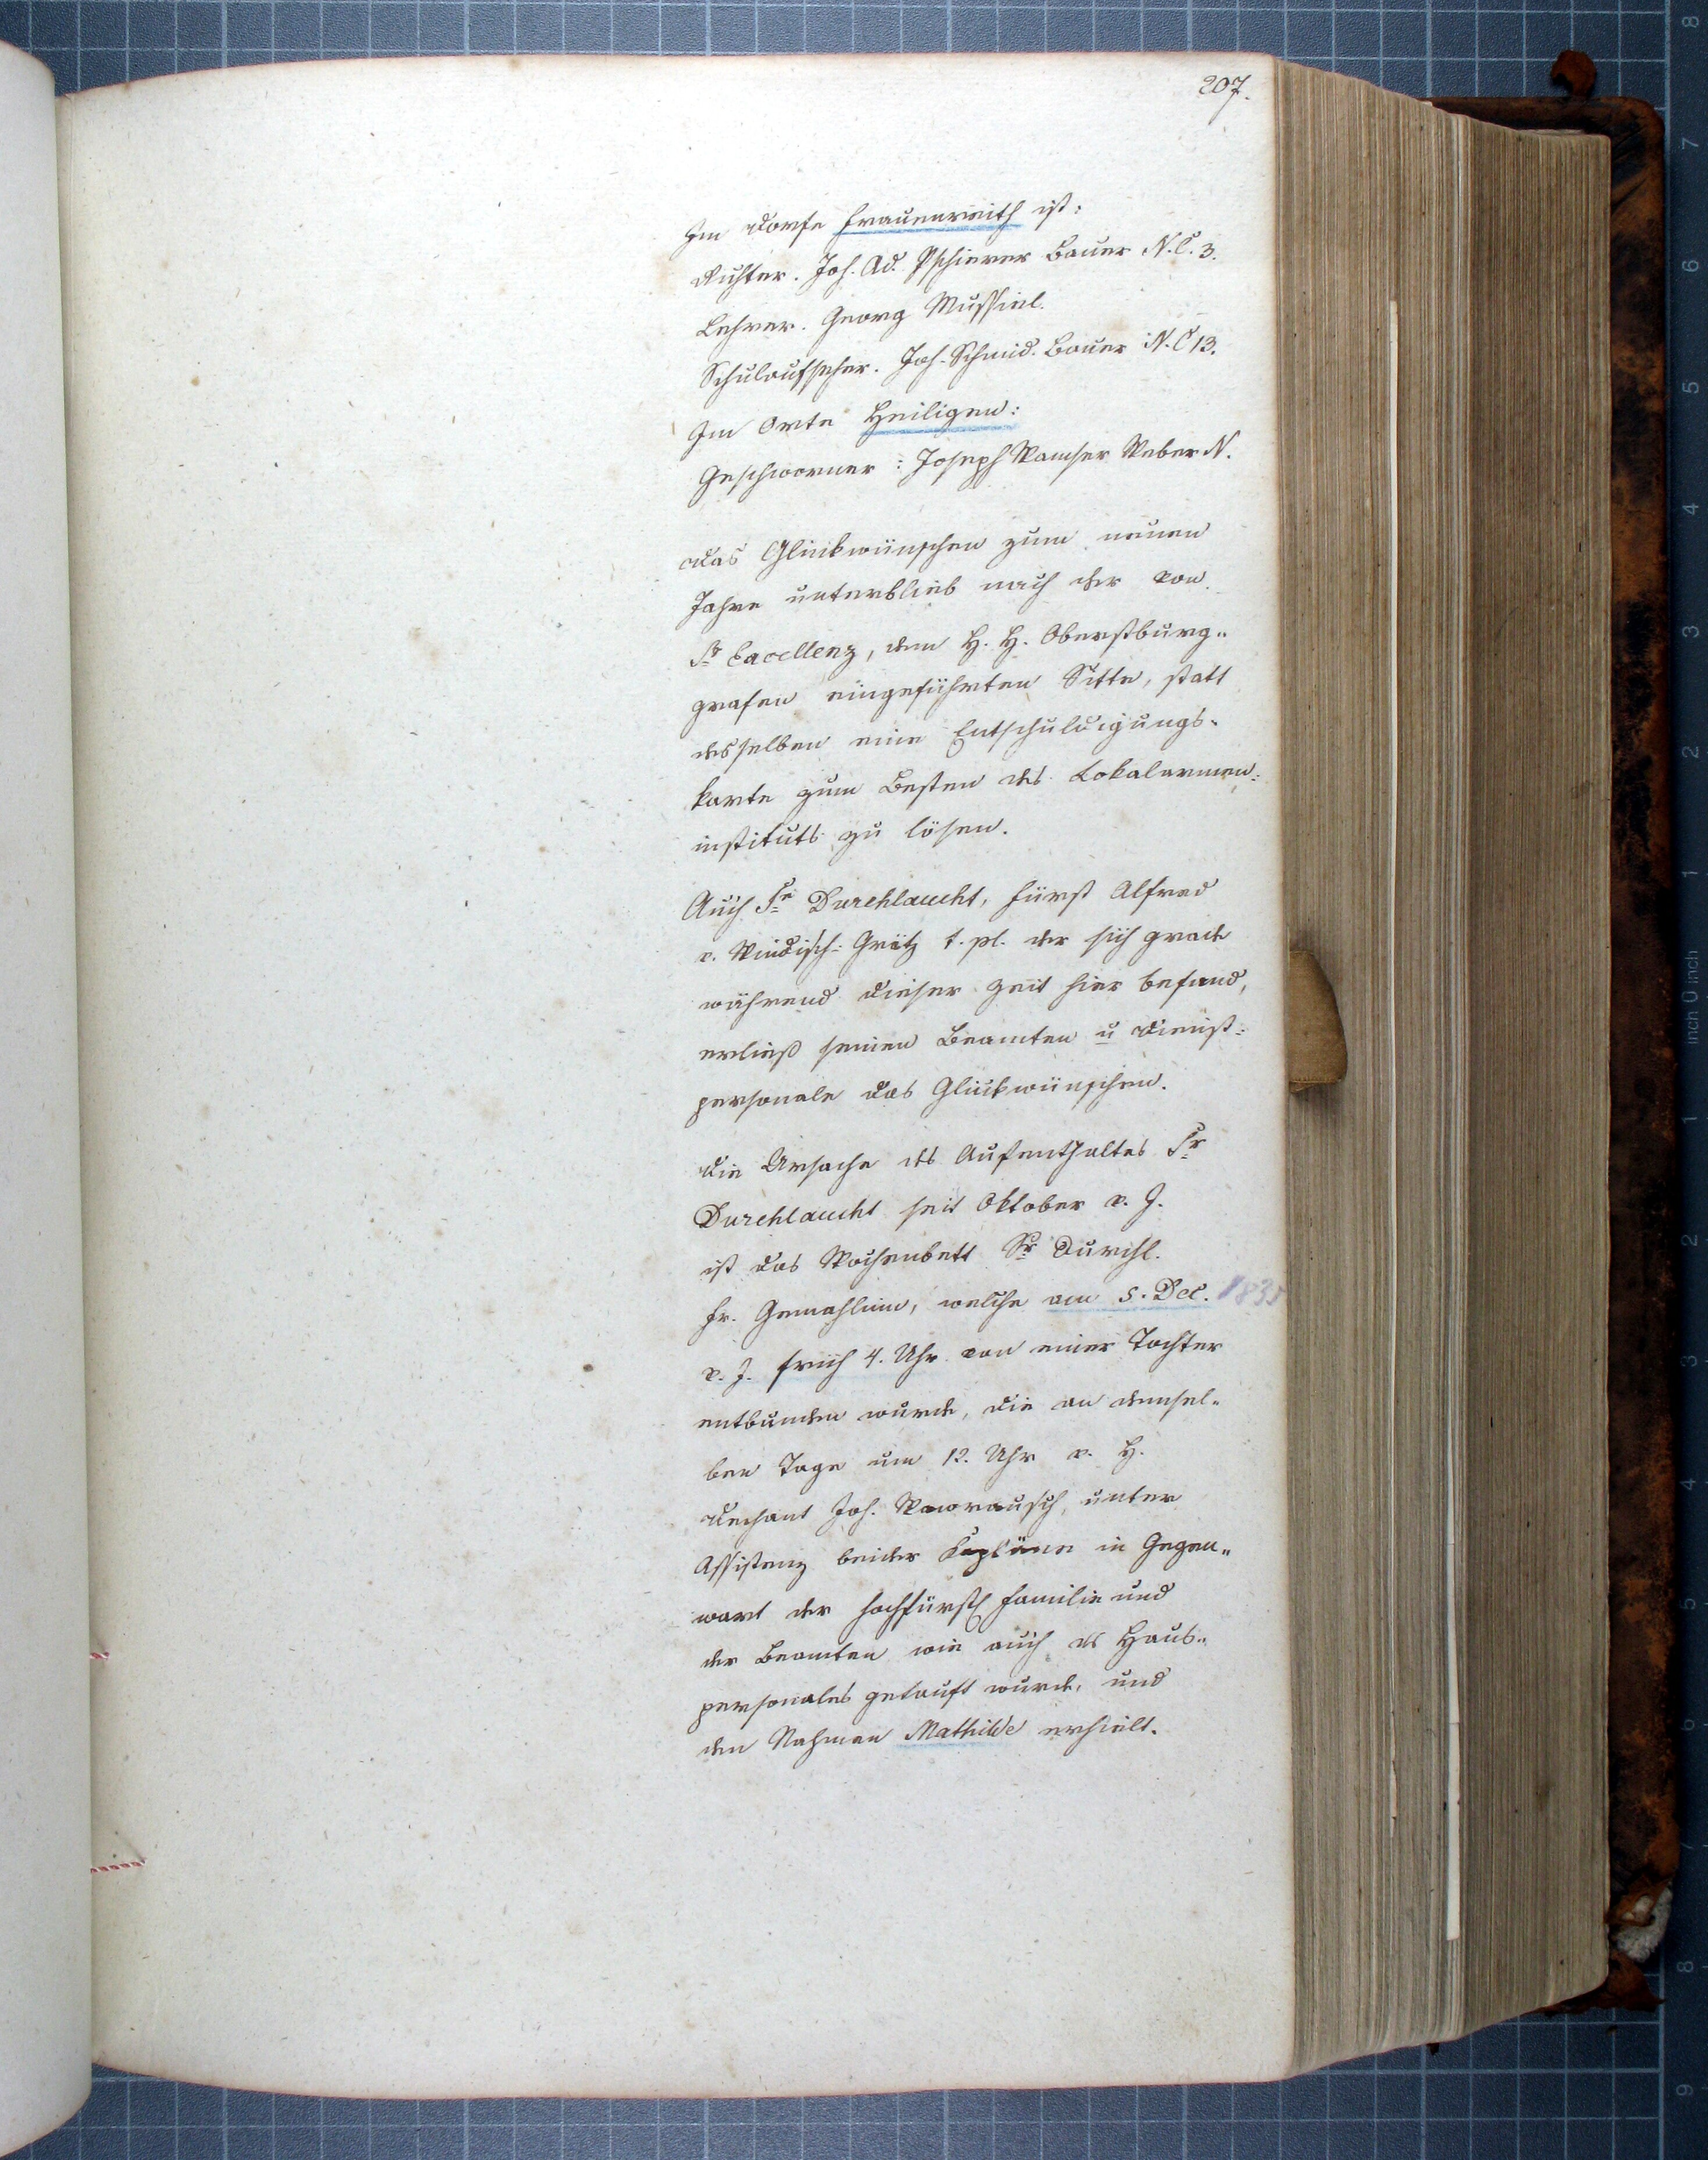 207.
Im Dorfe Frauenreith ist:
Richter. Joh. Ad. Pschierer Bauer N.C. 3.
Lehrer. Georg Mussiel.
Schulaufseher. Joh. Schmid. Bauer N.C 13.
Im Orte Heiligen:
Geschworner: Joseph Wamser Weber N.
Das Glückwünschen zum neuen
Jahre unterblieb nach der von
Sr Excellenz, dem H. H. Oberstburg„
grafen eingeführten Sitte, statt
desselben eine Entschuldigungs„
karte zum Besten des Lokalarmen:
instituts zu lösen.
Auch Se Durchlaucht, Fürst Alfred
v. Windisch-Grätz t. pl. der sich grade
während dieser Zeit hier befand,
erließ seinen Beamten u Dienst:
personale das Glückwünschen.
Die Ursache des Aufenthaltes Sr
Durchlaucht seit Oktober v. J.
ist das Wochenbett Sr Durchl.
Fr. Gemahlinn, welche am 5. Dec. 1835
v. J. früh 4. Uhr von einer Tochter
entbunden wurde, die an demsel„
ben Tage um 12. Uhr v. H.
Dechant Joh. Wawrausch, unter
Assistenz beider Kapläne in Gegen„
wart der hochfürstl Familie und
der Beamten wie auch des Haus„
personales getauft wurde, und
den Nahmen Mathilde erhielt.
8
7
6
5
4
3
2
1
inch 0 inch
1
2
3
4
5
6
7
8
9